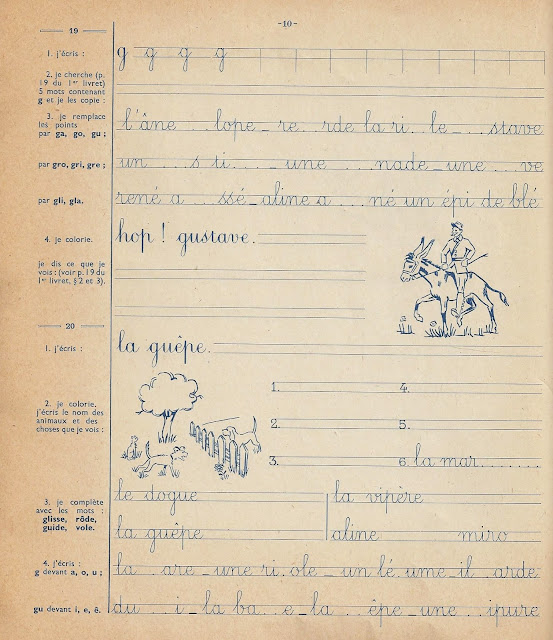 -10-
19
1. j'écris :
g g g g
2. je cherche (p.
19 du 1er livret)
5 mots contenant
g et je les copie :
3. je remplace
les points
par ga, go, gu ;
l'âne ..lope_re..rde la ri..le_..stave
par gro, gri, gre ;
un ...s ti..._une ...nade_une ...ve
par gli, gla.
rené a ...ssé_aline a ...né un épi de blé
4. je colorie.
hop ! gustave.
je dis ce que je
vois : (voir p. 19 du
1er livret, § 2 et 3).
20
1. j'écris :
la guêpe.
2. je colorie.
j'écris le nom des
animaux et des
choses que je vois :
1. 4.
2. 5.
3. 6. la mar.......
3. je complète
avec les mots :
glisse, rôde,
guide, vole.
le dogue la vipère
la guêpe aline miro
4. j'écris :
g devant a, o, u ;
la .are_une ri.ole_un lé.ume_il .arde
gu devant i, e, ê.
du ..i_la ba..e_la ..êpe_une ..ipure